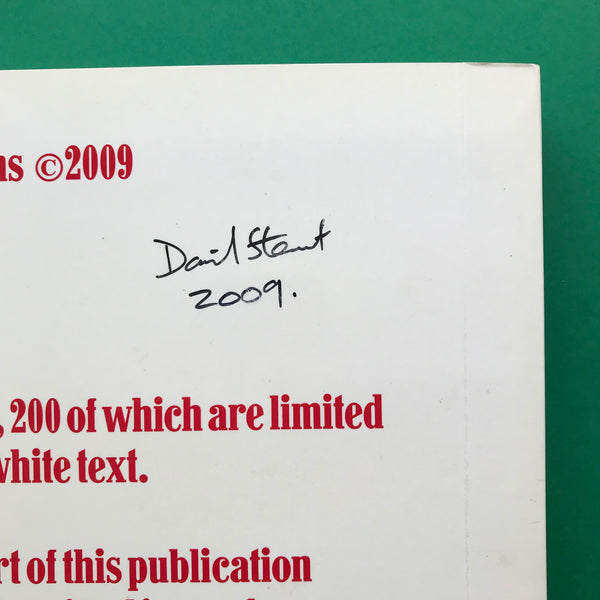 ns ©2009
David Stewart
2009.
, 200 of which are limited
white text.
rt of this publication